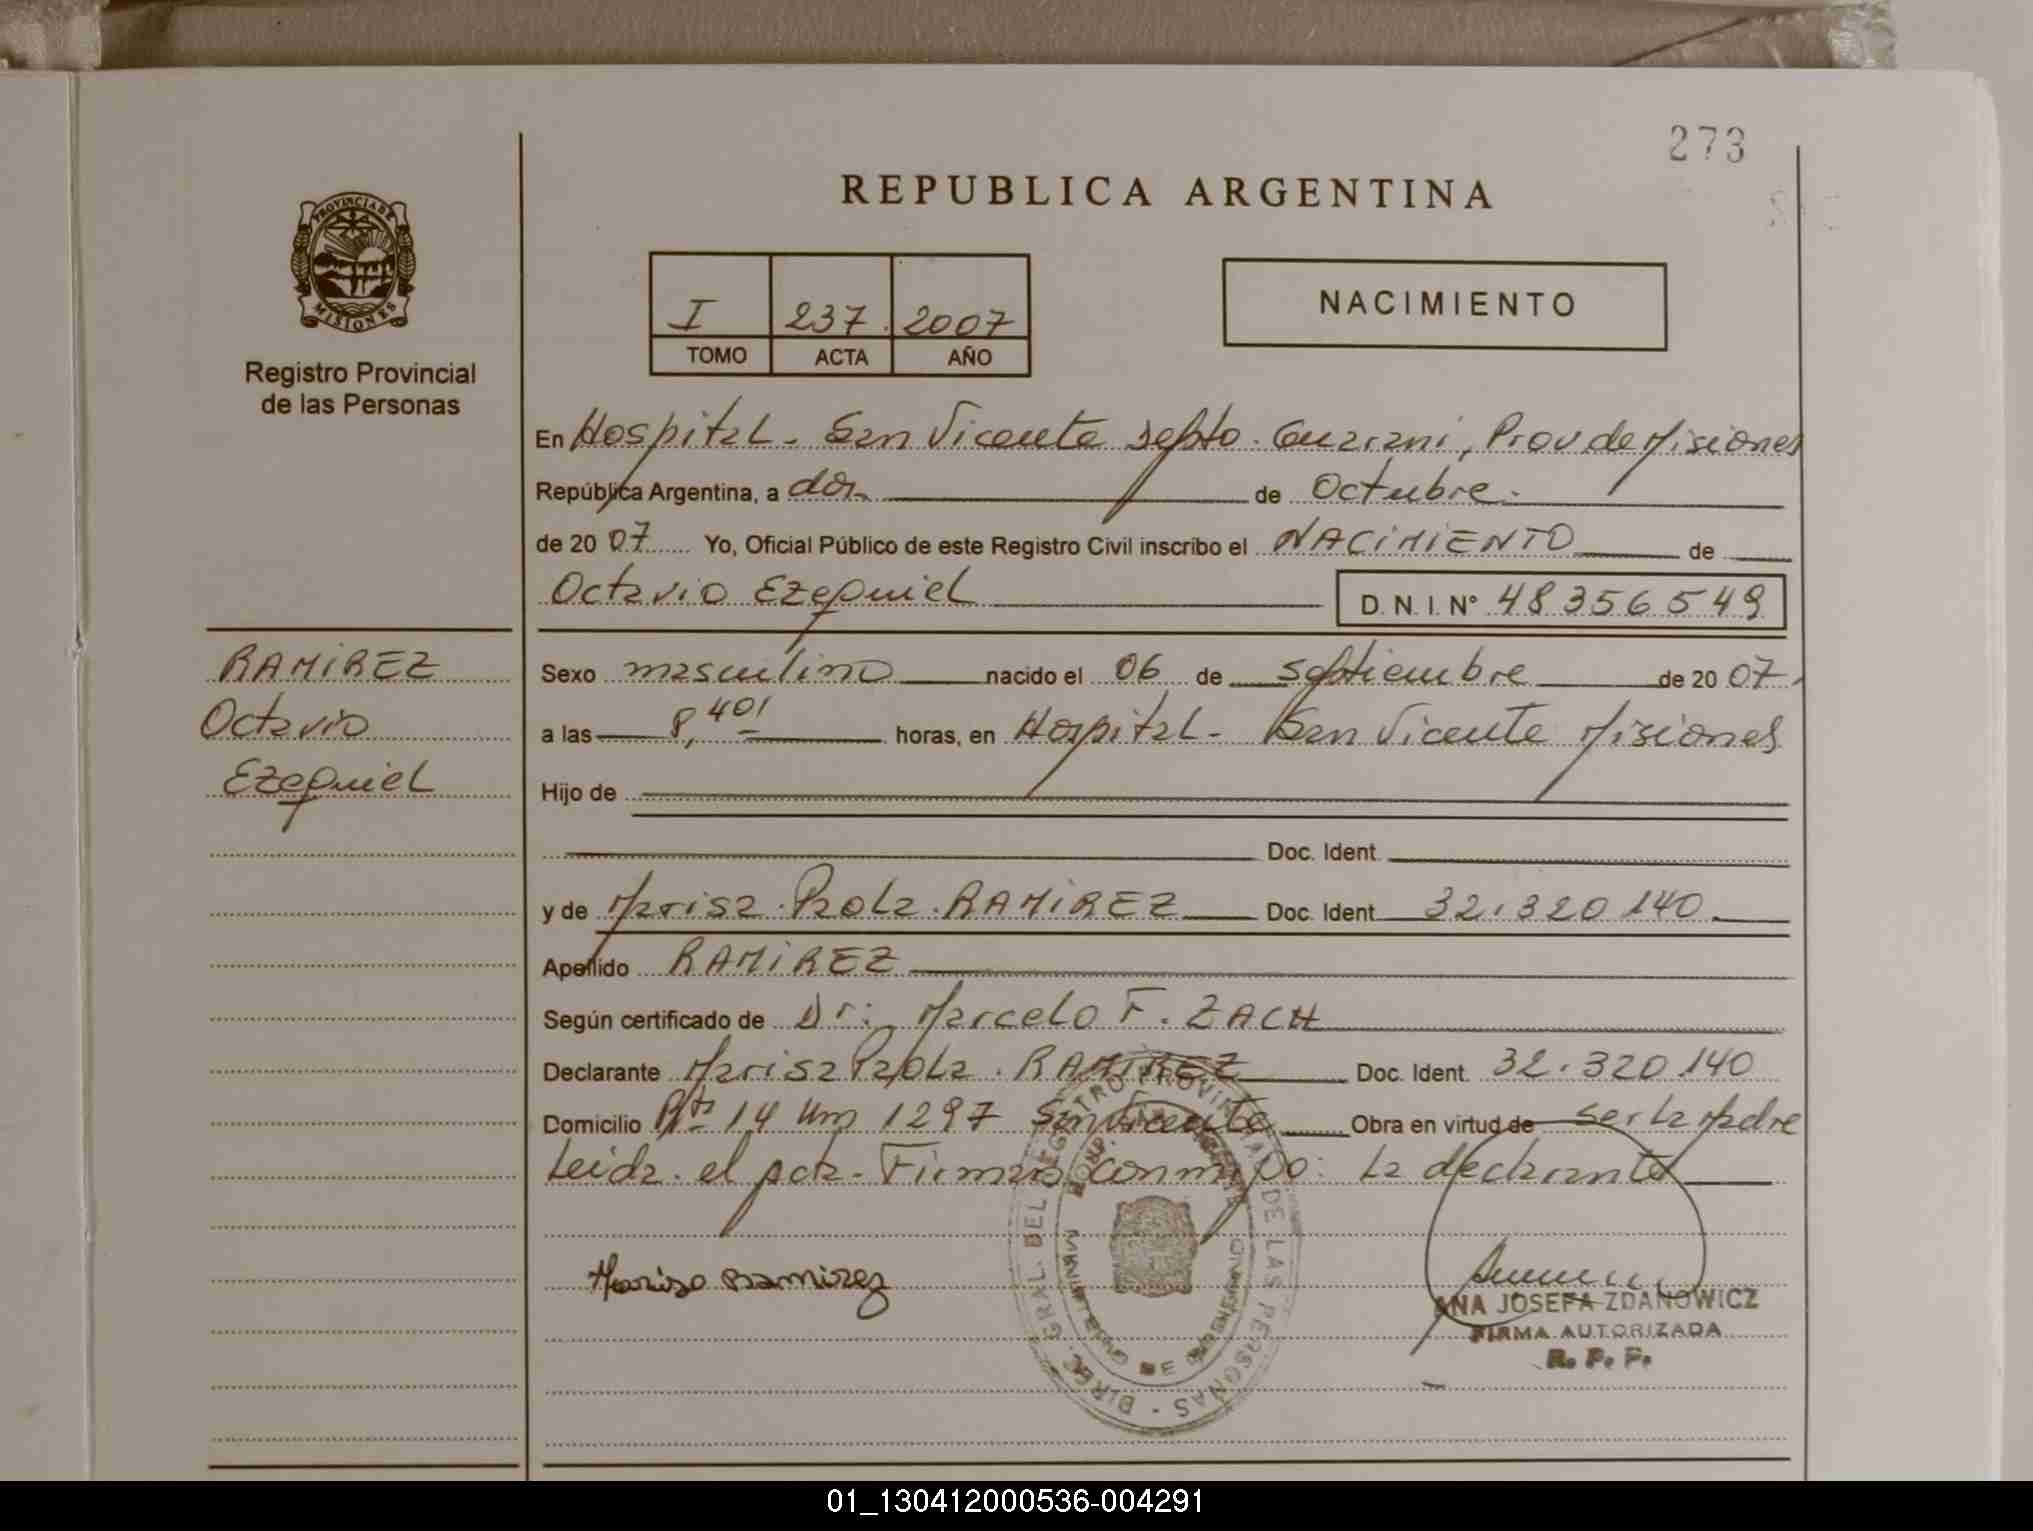 273
REPUBLICA ARGENTINA
PROVINCIA DE
MISIONES
Registro Provincial
de las Personas
I 237 2007
TOMO ACTA AÑO
NACIMIENTO
En Hospital - San Vicente Depto. Guarani, Prov de Misiones
República Argentina, a dos de Octubre.
de 20 07 Yo, Oficial Público de este Registro Civil inscribo el NACIMIENTO de
Octavio Ezequiel D.N.I.N° 48356549
RAMIREZ
Octavio
Ezequiel
Sexo masculino nacido el 06 de septiembre de 20 07.
a las 8,40' horas, en Hospital - San Vicente Misiones
Hijo de
Doc. Ident.
y de Marisa Paola RAMIREZ Doc. Ident. 32.320.140
Apellido RAMIREZ
Según certificado de Dr: Marcelo F. ZACH
Declarante Marisa Paola RAMIREZ Doc. Ident. 32.320.140
Domicilio Rta 14 Km 1297 San Vicente Obra en virtud de ser la Madre
Leida el acta - Firman conmigo: La declarante
Marisa Ramirez
DIREC. GRAL. DEL REGISTRO PROVINCIAL DE LAS PERSONAS
ANA JOSEFA ZDANOWICZ
FIRMA AUTORIZADA
R. P. P.
01_130412000536-004291